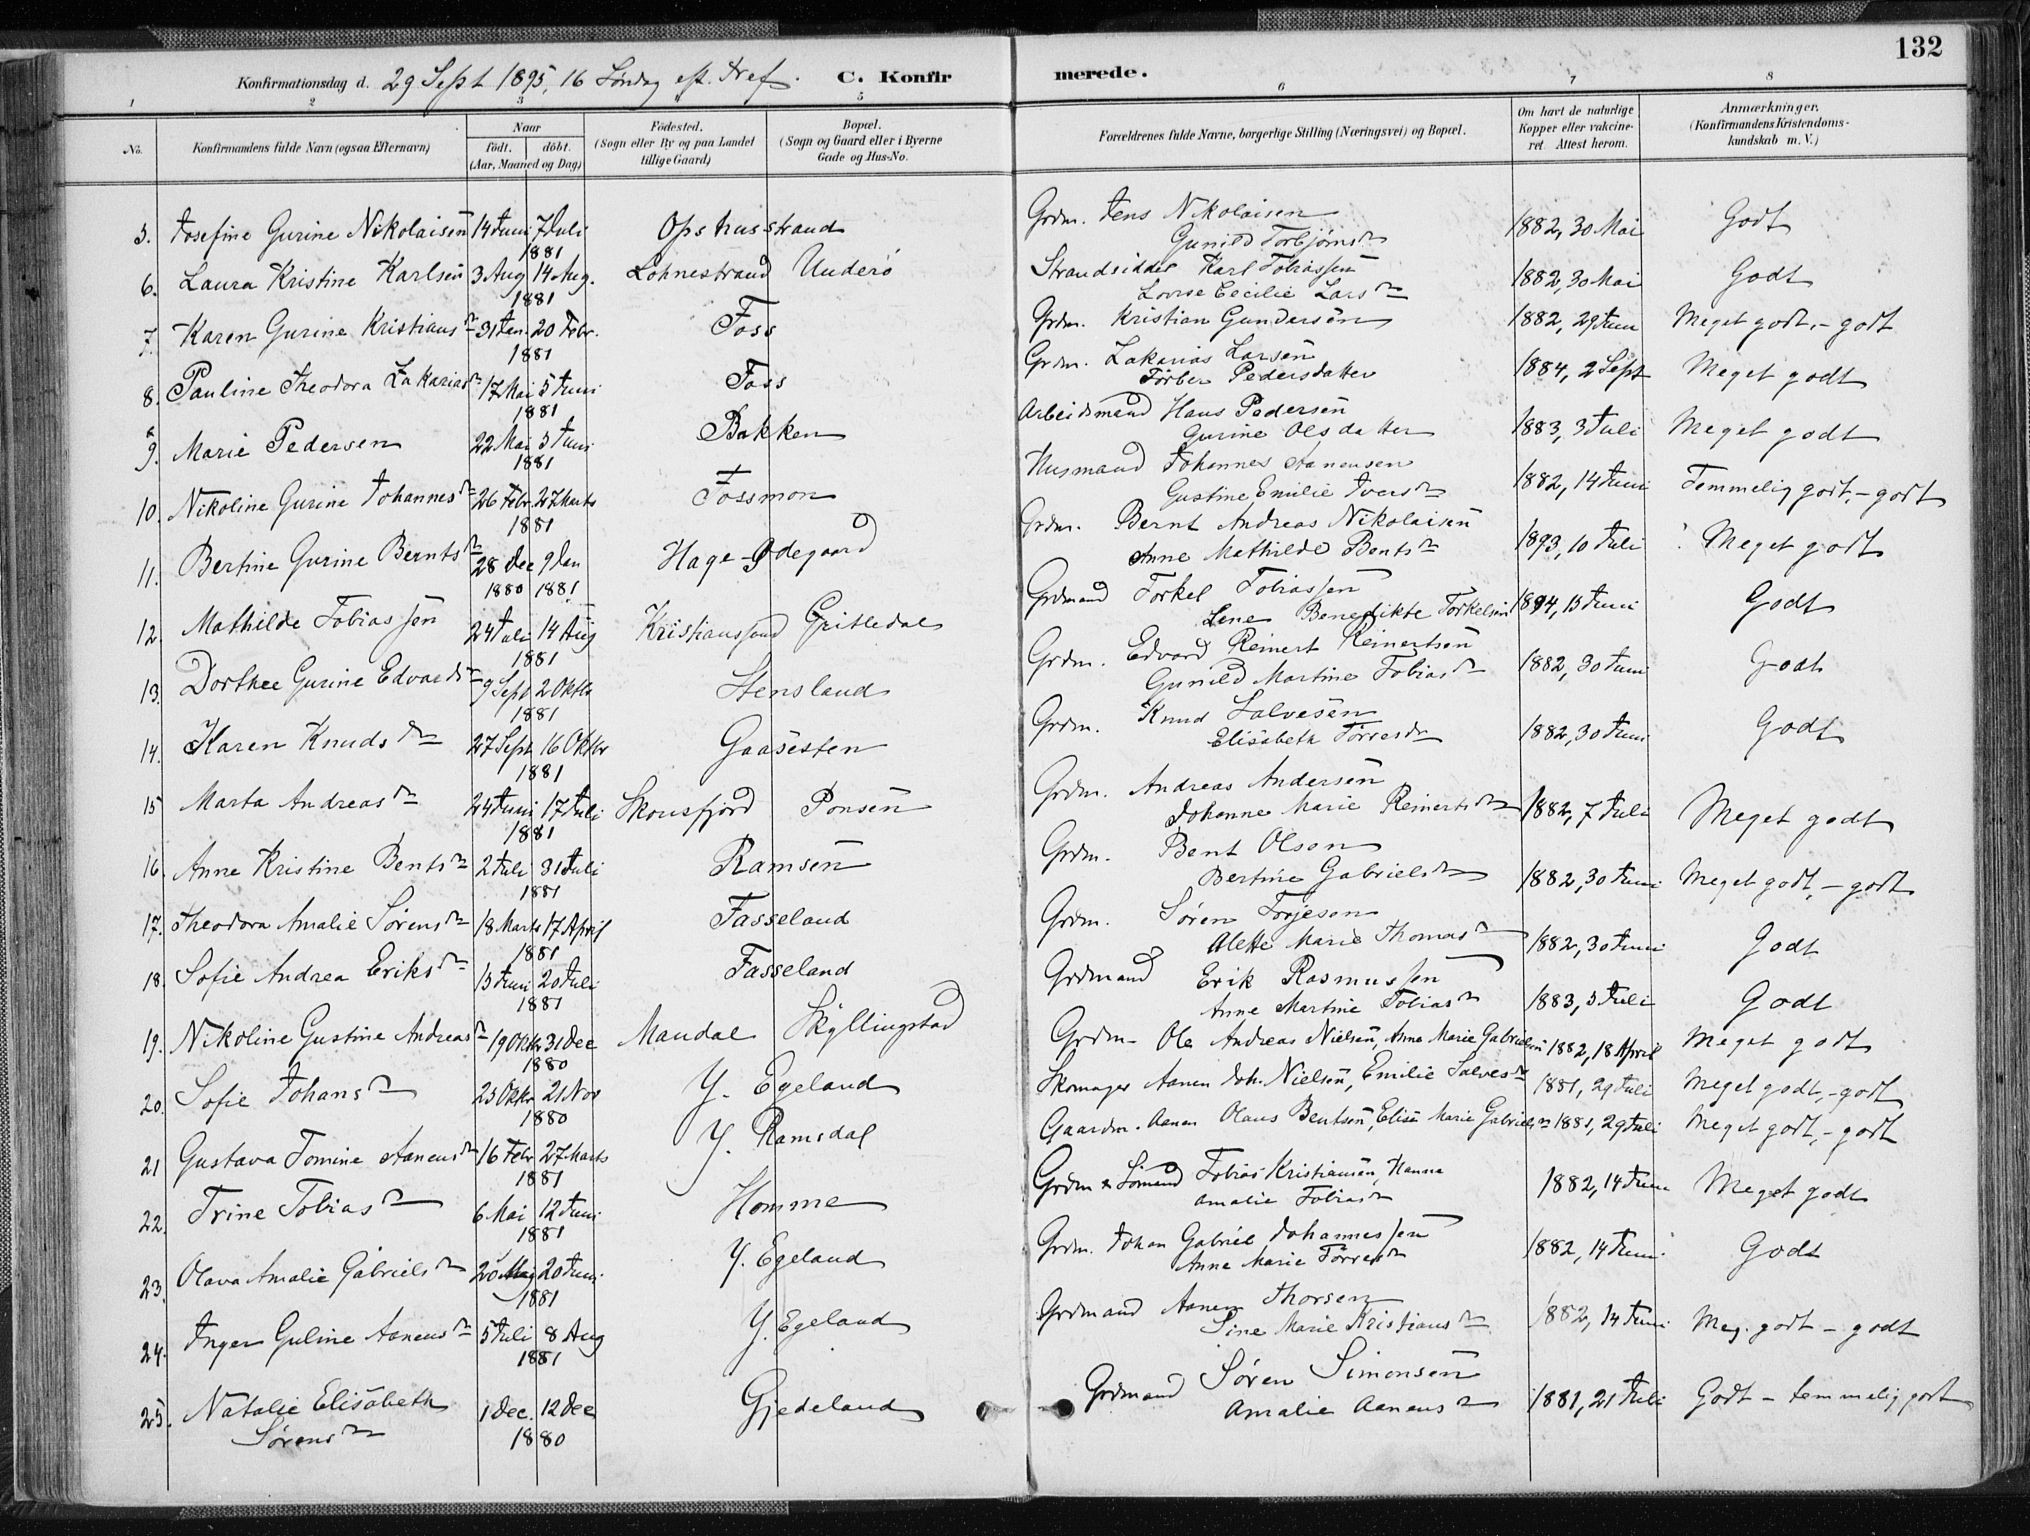 132
Konfirmationsdag d. 29 Sept 1895, 16 Søndag eft. Tref. C. Konfir merede.
1 2 3 5 6 7 8
No. Konfirmandens fulde Navn (ogsaa Efternavn) Naar født. døbt. (Aar, Maaned og Dag) Fødested. (Sogn eller By og paa Landet tillige Gaard) Bopæl. (Sogn og Gaard eller i Byerne Gade og Hus-No. Forældrenes fulde Navne, borgerlige Stilling (Næringsvei) og Bopæl. Om havt de naturlige Kopper eller vakcineret. Attest herom. Anmærkninger. (Konfirmandens Kristendomskundskab m. V.)
5. Josefine Gurine Nikolaisen 14 Juni 7 Juli 1881 Opshusstrand Grdm. Jens Nikolaisen Gunild Torbjørnsdr 1882, 30 Mai Godt
6. Laura Kristine Karlsen 3 Aug 14 Aug. 1881 Lohnestrand Underø Strandsidder Karl Tobiassen Lovise Cecilie Larsdr 1882, 30 Mai Godt
7. Karen Gurine Kristiansdr 31 Jan. 20 Febr. 1881 Foss Grdm. Kristian Gundersen 1882, 29 Juni Meget godt, - godt
8. Pauline Theodora Zakariasdr 17 Mai 5 Juni 1881 Foss Grdm. Zakarias Larsen Tørber Pedersdatter 1884, 2 Sept Meget godt
9. Marie Pedersen 22 Mai 5 Juni 1881 Bakken Arbeidsmand Hans Pedersen Gurine Olsdatter 1883, 3 Juli Meget godt
10. Nikoline Gurine Johannesdr 26 Febr 27 Marts 1881 Fossmon Husmand Johannes Aanensen Gustine Emilie Iversdr 1882, 14 Juni Temmelig godt, - godt
11. Bertine Gurine Berntsdr 28 Dec 1880 9 Jan 1881 Hage-Ødegaard Grdm. Bernt Andreas Nikolaisen Anne Mathilde Bentsdr 1893, 10 Juli Meget godt
12. Mathilde Tobiassen 24 Juli 14 Aug 1881 Kristianssand Gritledal Grdmand Torkel Tobiassen Lene Benedikte Torkelsen 1894, 15 Juni Godt
13. Dorthee Gurine Edvardsdr 9 Sept 2 Oktb 1881 Stensland Grdm. Edvard Reinert Reinertsen Gunild Martine Tobiasdr 1882, 30 Juni Godt
14. Karen Knudsdr 27 Sept 16 Oktbr 1881 Gaasesten Grdm. Knud Salvesen Elisabeth Tørresdr 1882, 30 Juni Godt
15 Marta Andreasdr 24 Juni 17 Juli 1881 Skonsfjord Ponsen Grdm. Andreas Andersen Johanne Marie Reinertsdr 1882, 7 Juli Meget godt
16. Anne Kristine Bentsdr 2 Juli 31 Juli 1881 Ramsen Grdm. Bent Olsen Bertine Gabrielsdr 1882, 30 Juni Meget godt, - godt
17. Theodora Amalie Sørensdr 18 Marts 17 April 1881 Fasseland Grdm. Søren Torjesen Alette Marie Thomasdr 1882, 30 Juni Godt
18. Sofie Andrea Eriksdr 13 Juni 20 Juli 1881 Fasseland Grdmand Erik Rasmussen Anne Martine Tobiasdr 1883, 5 Juli Godt
19. Nikoline Gustine Andreasdr 19 Oktbr 31 Dec 1880 Mandal Skyllingstad Grdm- Ole Andreas Nielsen, Anne Marie Gabrielsen 1882, 18 April Meget godt
20. Sofie Johansdr 25 Oktbr 21 Nov 1880 Y. Egeland Skomager Aanen Joh. Nielsen, Emilie Salvesdr 1881, 29 Juli Meget godt, - godt
21 Gustava Tomine Aanensdr 16 Febr 27 Marts 1881 Y. Ramsdal Gaardm. Aanen Olaus Bentsen, Elise Marie Gabrielsdr 1881, 29 Juli Meget godt, - godt
22. Trine Tobiasdr 6 Mai 12 Juni 1881 Homme Grdm & Sømand Tobias Kristiansen, Hanna Amalie Tobiasdr 1882, 14 Juni Meget godt
23. Olava Amalie Gabrielsdr 20 Maj 20 Juni 1881 Y. Egeland Grdm. Johan Gabriel Johannessen Anne Marie Tørresdr 1882, 14 Juni Godt
24. Inger Guline Aanensdr 5 Juli 8 Aug 1881 Y. Egeland Grdmand Aanen Thorsen Sine Marie Kristiansdr 1882, 14 Juni Meg. godt - godt
25. Natalie Elisabeth Sørensdr 1 Dec. 12 Dec 1880 Gjedeland Grdmand Søren Simonsen Amalie Aanensdr 1881, 21 Juli Godt - temmelig godt